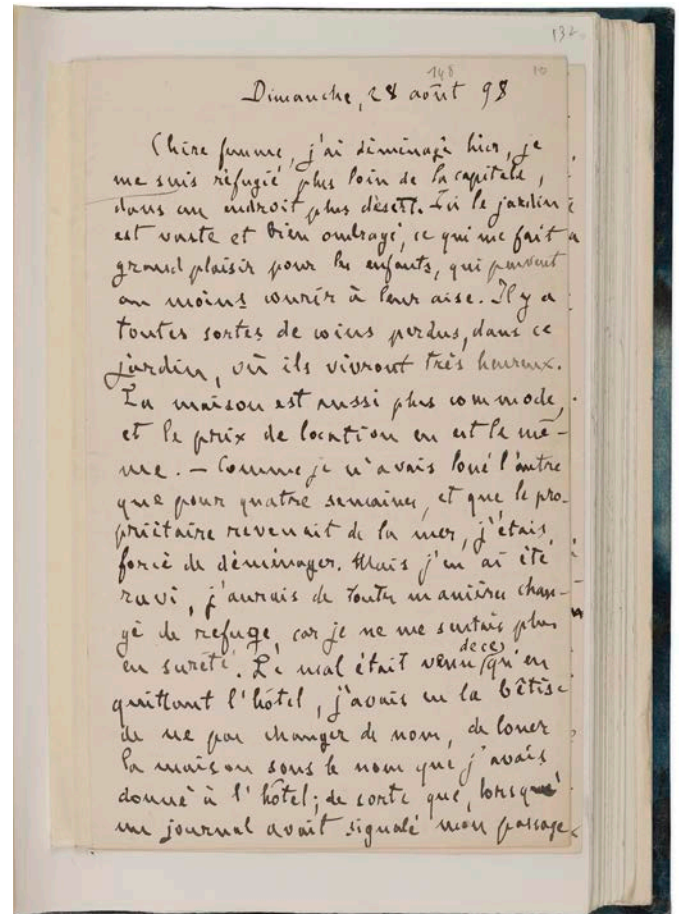 132
148 10
Dimanche, 28 août 98
Chère femme, j'ai déménagé hier, je
me suis réfugié plus loin de la capitale,
dans un endroit plus désert. Ici le jardin
est vaste et bien ombragé, ce qui me fait
grand plaisir pour les enfants, qui peuvent
au moins courir à leur aise. Il y a
toutes sortes de coins perdus, dans ce
jardin, où ils vivront très heureux.
La maison est aussi plus commode,
et le prix de location en est le mê-
me. — Comme je n'avais loué l'autre
que pour quatre semaines, et que le pro-
priétaire revenait de la mer, j'étais
forcé de déménager. Mais j'en ai été
ravi, j'aurais de toute manière chan-
gé de refuge, car je ne me sentais plus
en sureté. Le mal était venu de ce qu'en
quittant l'hôtel, j'avais eu la bêtise
de ne pas changer de nom, de louer
la maison sous le nom que j'avais
donné à l'hôtel; de sorte que, lorsque
un journal avait signalé mon passage